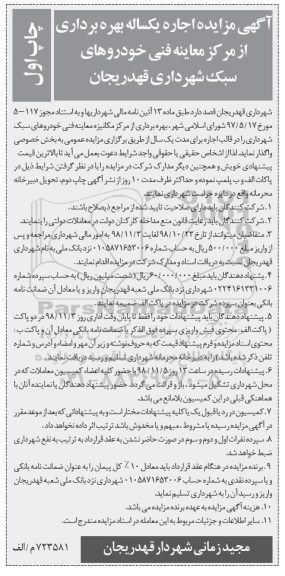 آگهی مزایده اجاره یکساله بهره برداری
از مرکز معاینه فنی خودروهای
سبک شهرداری قهدریجان
چاپ اول
شهرداری قهدریجان قصد دارد طبق ماده ۱۳ آئین نامه مالی شهرداریها و به استناد مجوز ۱۱۷-۵
مورخ ۹۷/۵/۱۷ شورای اسلامی شهر، بهره برداری از مرکز مکانیزه معاینه فنی خودروهای سبک
شهرداری را در قالب اجاره برای مدت یک سال از طریق برگزاری مزایده عمومی به بخش خصوصی
واگذار نماید. لذا از اشخاص حقیقی یا حقوقی واجد شرایط دعوت بعمل می آید تا بالاترین قیمت
پیشنهادی خویش و همچنین دیگر مدارک شرکت در مزایده را با در نظر گرفتن شرایط ذیل در
پاکات الف و ب پلمپ نموده و حداکثر ظرف مدت ۱۰ روز از نشر آگهی چاپ دوم، تحویل دبیرخانه
محرمانه واقع در دایره حراست شهرداری نمایند.
۱. شرکت کنندگان باید دارای صلاحیت تایید شده از مراجع ذیصلاح باشند.
۲. شرکت کنندگان باید رعایت قانون منع مداخله کارکنان دولت در معاملات دولتی را بنمایند.
۳. متقاضیان میتوانند از تاریخ ۹۸/۱۰/۲۳ لغایت ۹۸/۱۱/۳ به امور مالی شهرداری مراجعه و پس
از واریز مبلغ ۵۰۰/۰۰۰ ریال به حساب شماره ۰۱۰۵۸۷۱۶۵۳۰۰۶ نزد بانک ملی به نام شهرداری
قهدریجان نسبت به دریافت اسناد و مدارک شرکت در مزایده اقدام نمایند.
۴. پیشنهاد دهندگان باید مبلغ ۶۰/۰۰۰/۰۰۰ ریال (شصت میلیون ریال) به حساب سپرده شماره
۰۲۲۴۱۶۱۳۳۱۰۰۶ شهرداری نزد بانک ملی شعبه قهدریجان واریز و یا معادل آن ضمانت نامه
بانکی بعنوان سپرده شرکت در مزایده در پاکت الف ضمیمه نمایند.
۵. پیشنهاد دهندگان، باید پیشنهادات خود را فقط تا پایان وقت اداری روز ۹۸/۱۱/۳ در دو پاکت
( پاکت الف: محتوی فیش واریزی سپرده فوق الذکر یا ضمانت نامه بانکی معادل آن و پاکت ب:
محتوی اسناد مزایده و فرم پیشنهاد قیمت که به حروف نوشته و زیر آن مهر و امضاء و آدرس و شماره
تلفن ذکر شده باشد) را به دبیرخانه محرمانه شهرداری تسلیم و رسید دریافت نمایند.
۶. پیشنهادات رسیده در ساعت ۱۳ روز ۹۸/۱۱/۵ با حضور کلیه اعضاء کمیسیون معاملات که در
محل شهرداری تشکیل میشود، باز و قرائت می گردد. حضور پیشنهاد دهندگان یا نماینده آنان با
هماهنگی قبلی در این کمیسیون بلامانع می باشد.
۷. کمیسیون در رد یا قبول یک یا کلیه پیشنهادات مختار است و به پیشنهاداتی که بعد از موعد مقرر
در آگهی مزایده رسیده یا مشروط، مبهم و یا مخدوش باشد ترتیب اثر داده نخواهد داد.
۸. سپرده نفرات اول و دوم و سوم در صورت حاضر نشدن به عقد قرارداد به ترتیب به نفع شهرداری
ضبط خواهد شد.
۹. برنده مزایده در هنگام عقد قرارداد باید معادل ۱۰٪ کل پیمان را به عنوان ضمانت نامه بانکی
و یا سپرده نقدی به شماره حساب ۰۱۰۵۸۷۱۶۵۳۰۰۶ شهرداری نزد بانک ملی شعبه قهدریجان
واریز و رسید آن را به شهرداری تسلیم نماید.
۱۰. هزینه آگهی مزایده به عهده برنده مزایده می باشد.
۱۱. سایر اطلاعات و جزئیات مربوط به این معامله در اسناد مزایده مندرج است.
مجید زمانی شهردار قهدریجان
۷۲۳۵۸۱/م الف